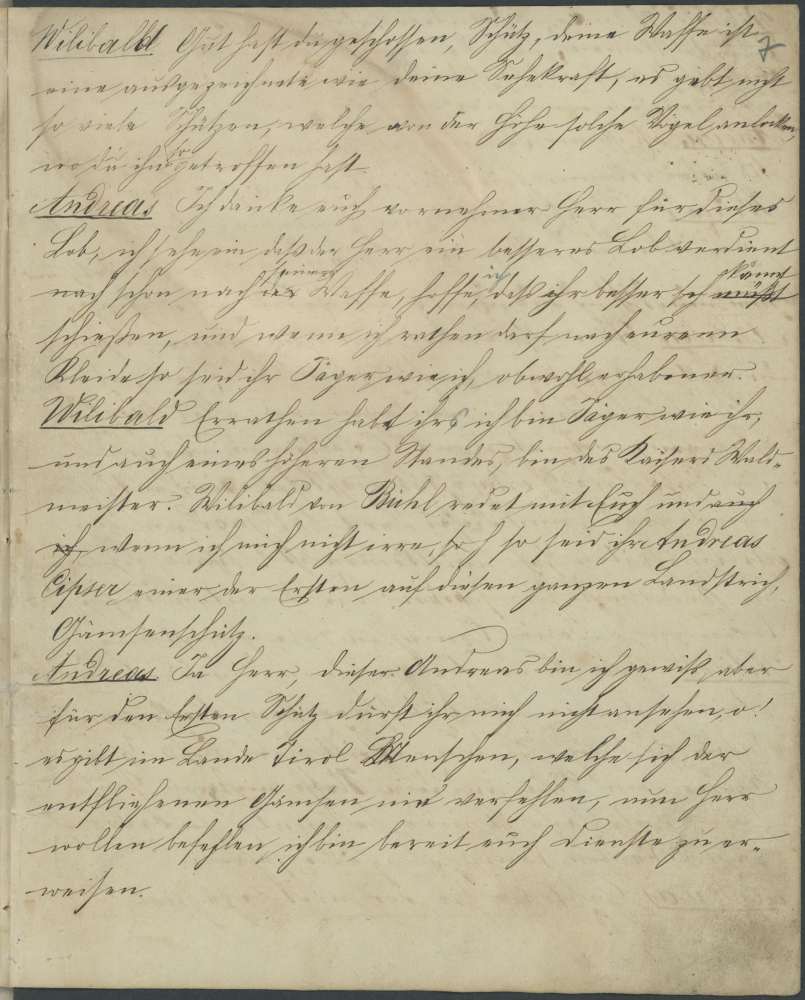 Wilibald Gut hast du geschossen, Schütz, deine Waffe ist 7
eine ausgezeichnete wie deine Sehekraft, es gebt nicht
so viele Schützen, welche von der Höhe solche Vögel anlocken,
wo du ihn so getroffen hast.
Andreas Ich danke euch vornehmer Herr für dieses
Lob, ich sehe ein, daß der Herr ein besseres Lob verdient
nach schon nach der seiner Waffe, hoffe ich daß ihr besser sch müßt könnt
schießen, und wenn ich rathen darf nach eurenn
Kleide so seid ihr Jäger wie ich, obwohl erhabener.
Wilibald Errathen habt ihrs ich bin Jäger wie ihr,
und auch eines höheren Standes, bin des Kaisers Wald-
meister. Wilibald von Bichl redet mit Euch und auch
ich wenn ich mich nicht irre, so seid ihr Andreas
Cipser einer der Ersten auf diesen ganzen Landstrich,
Gämsenschütz.
Andreas Ja Herr, dieser Andreas bin ich gewiß, aber
für den Ersten Schütz dürft ihr mich nicht ansehen, o!
es gibt im Lande Tirol Menschen, welche sich der
entfliehenen Gämsen nie verfehlen, nun Herr
wollen befehlen, ich bin bereit euch Dienste zu er-
weisen.